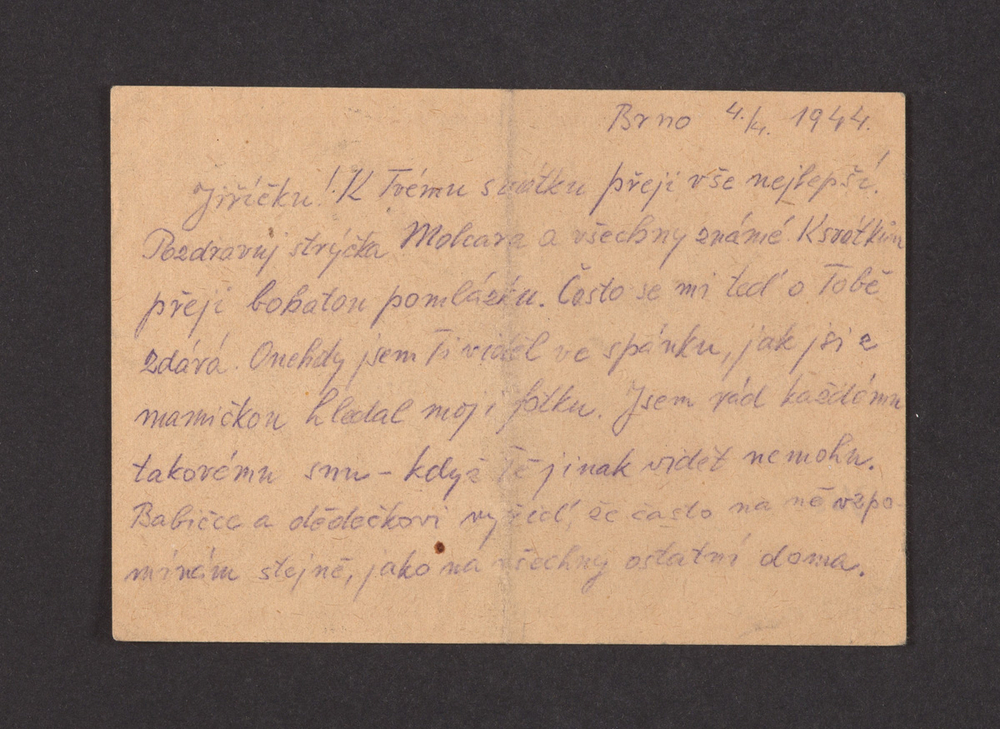 Brno 4./4. 1944.
Jiříčku! K Tvému svátku přeji vše nejlepší.
Pozdravuj strýčka Molcara a všechny známé K svátkům
přeji bohatou pomlázku. Často se mi teď o Tobě
zdává. Onehdy jsem Ti viděl ve spánku, jak jsi z
mamičkou hledal moji fotku. Jsem rád každému
takovému snu – když Tě jinak vidět nemohu.
Babičce a dědečkovi vyřiď, že často na ně vzpo-
mínám stejně, jako na všechny ostatní doma.